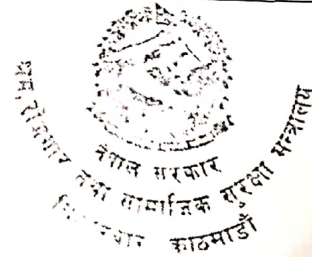 नेपाल सरकार
श्रम, रोजगार तथा सामाजिक सुरक्षा मन्त्रालय
काठमाडौँ